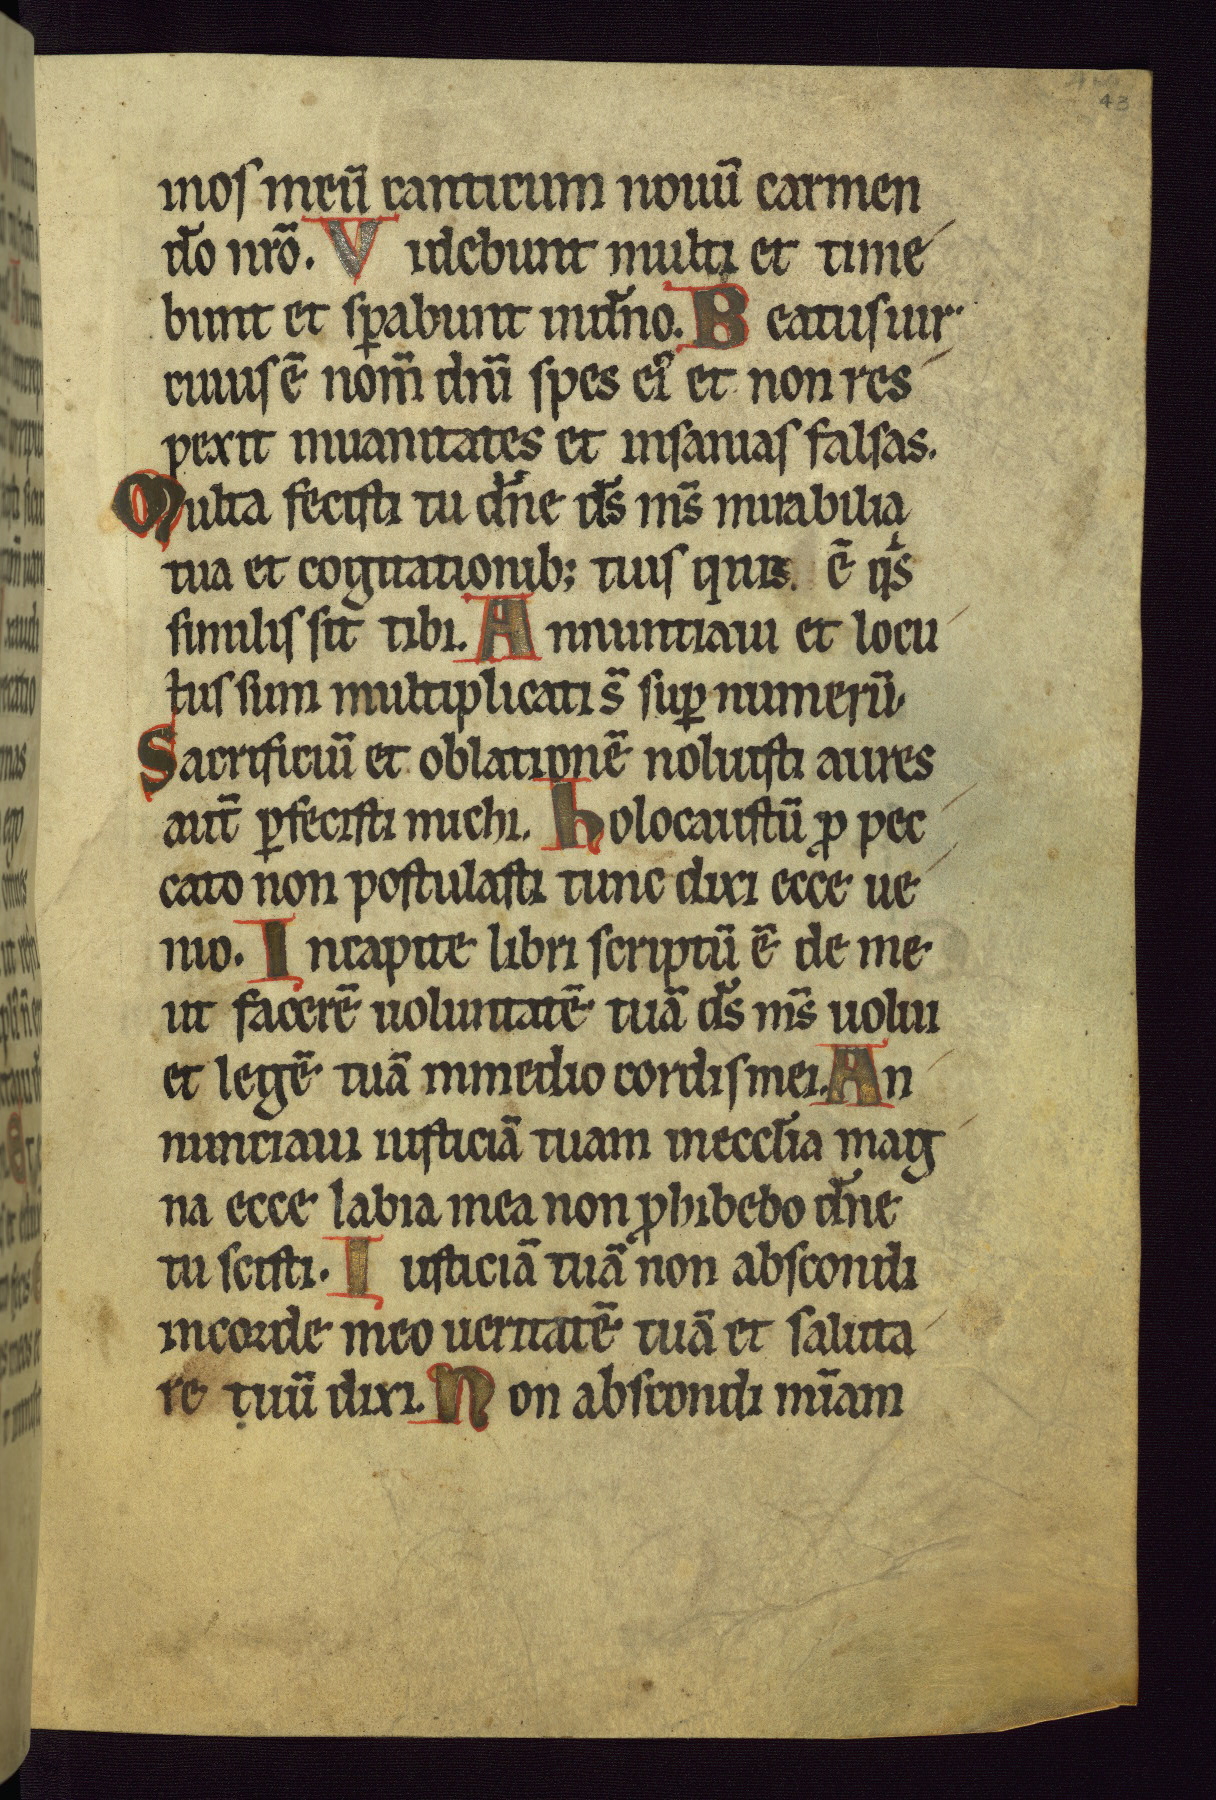 43
inos meū canticum nouū carmen
dō nrō. Videbunt multi et time
bunt et sp̱abunt indn̄o. Beatus uir
cuius ē nom̄ dn̄i spes ei᷒ et non res
pexit inuanitates et insanias falsas.
Multa fecisti tu dn̄e ds̄ ms̄ mirabilia
tua et cogitationib; tuis quis. ē qͥs
similis sit tibi. Annuntiaui et locu
tus sum multiplicati s̄ sup̱ numerū.
Sacrificiū et oblationē noluisti aures
aut̄ p̱fecisti michi. holocaustū ꝓ pec
cato non postulasti tunc dixi ecce ue
nio. Incapite libri scriptū ē de me
ut facerē uoluntatē tuā ds̄ ms̄ uolui
et legē tuā inmedio cordis mei. An
nunciaui iusticiā tuam ineccl̄ia mag
na ecce labia mea non ꝓhibebo dn̄e
tu scisti. Iusticiā tuā non abscondi
incorde meo ueritatē tuā et saluta
re tuū dixi. Non abscondi mīam